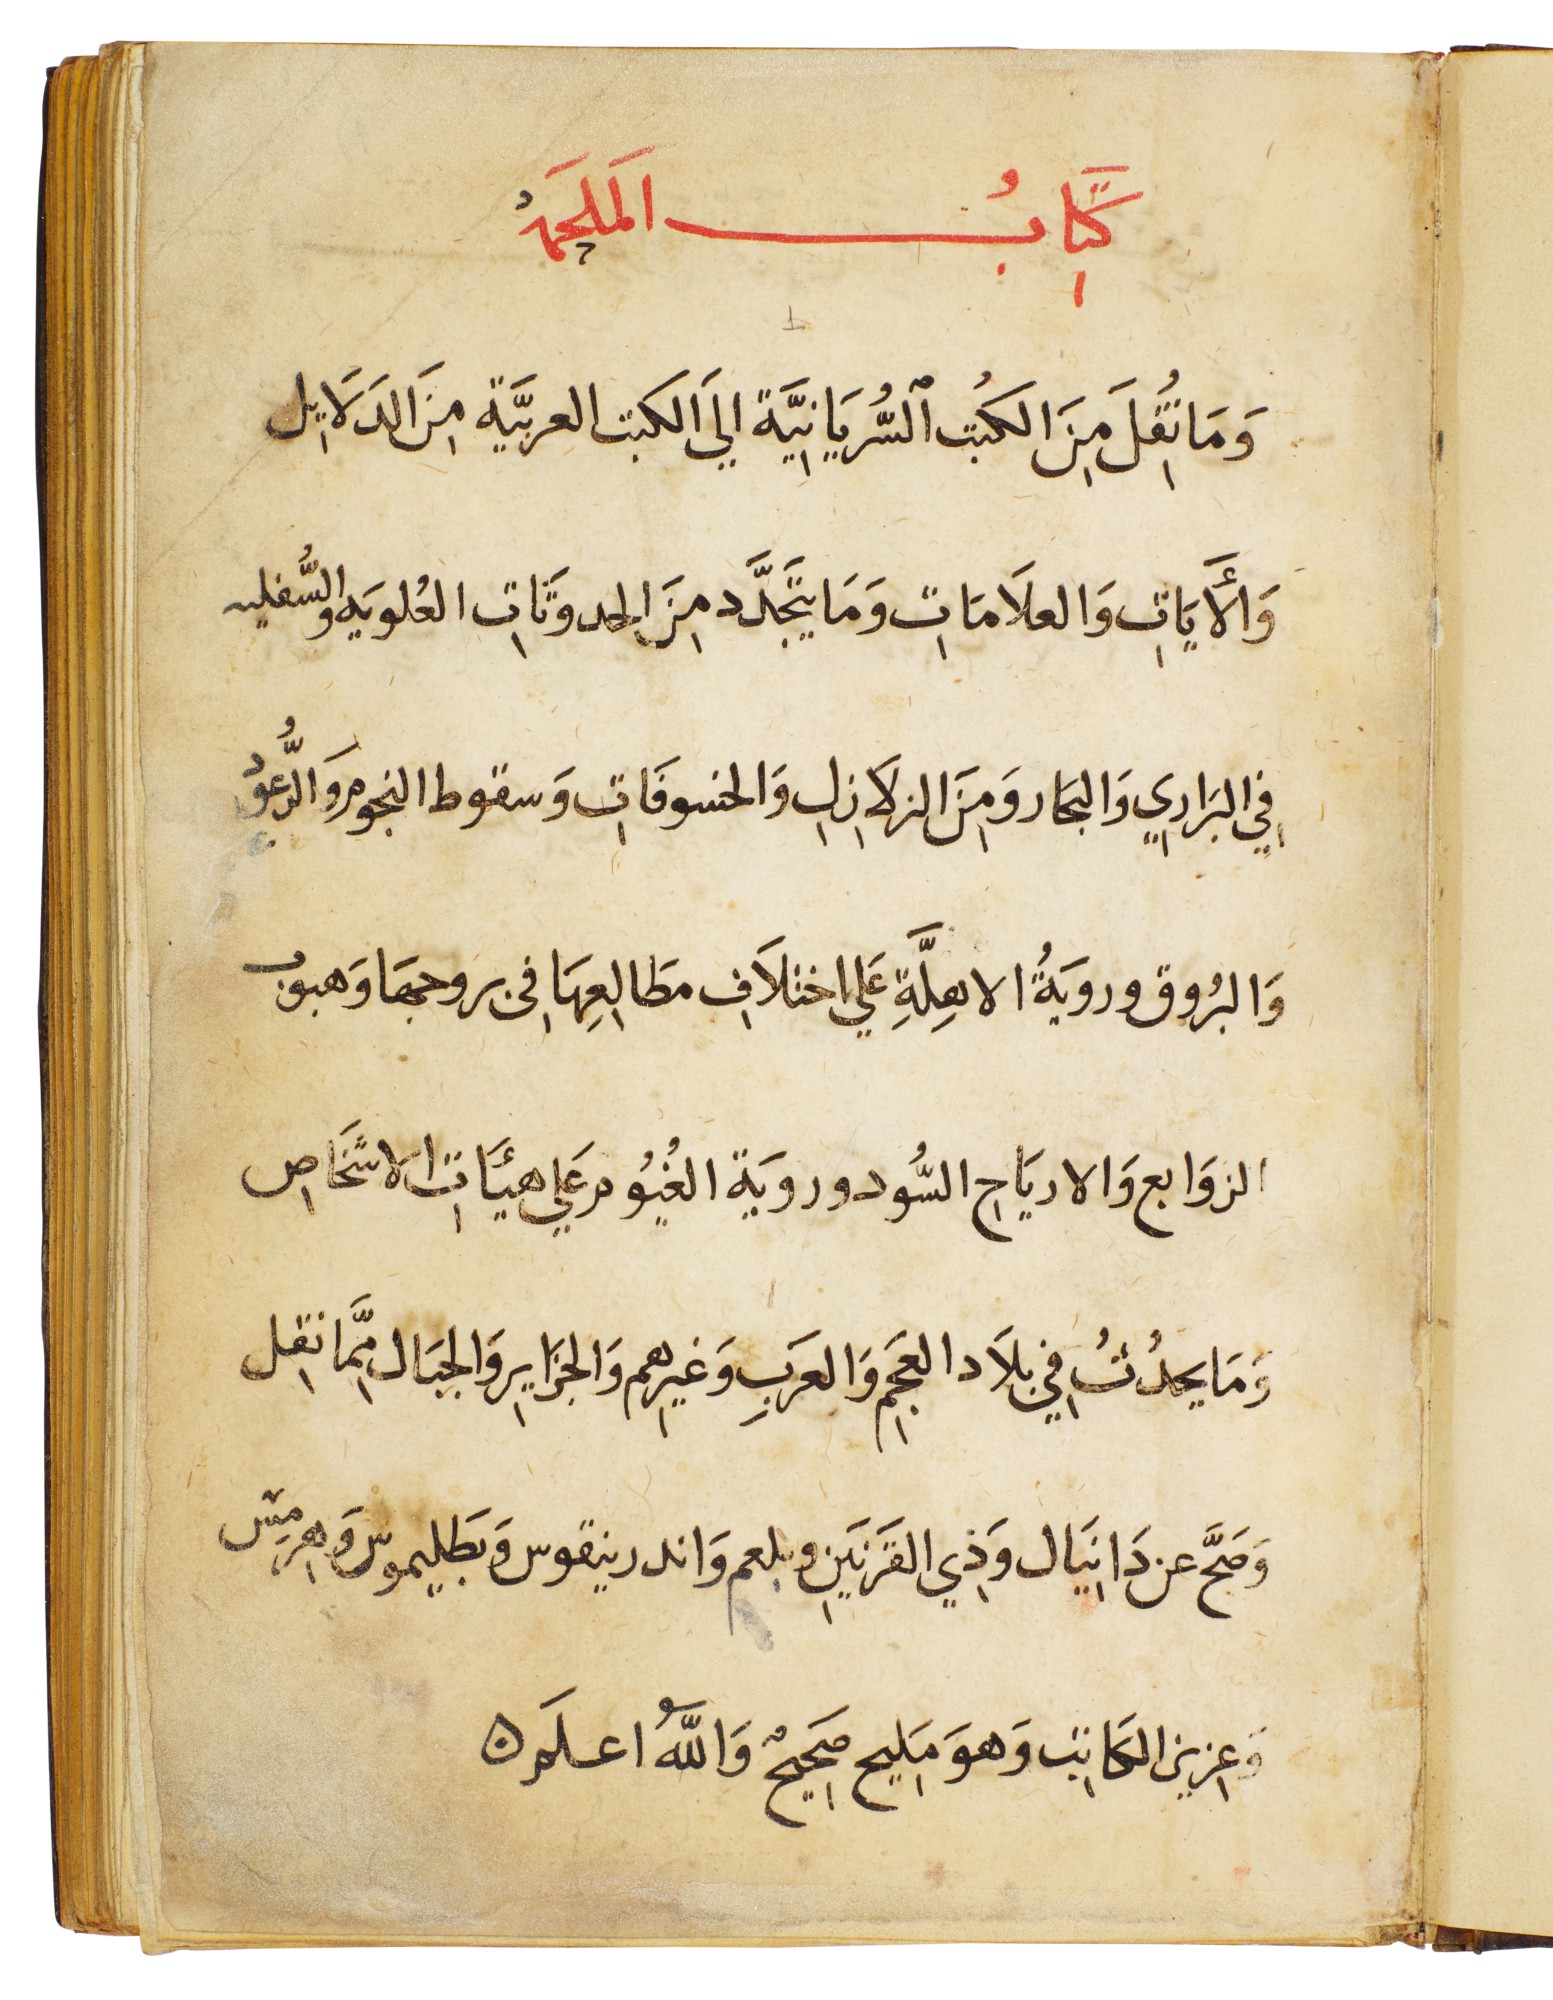 كِتَابُ المَلحَمَهُ
وَمَا نُقِلَ مِنَ الكُتب السُّريَانِيَّة الي الكتب العربيَّة مِنَ الدَلَايِل
وَالأَيَاتِ وَالعلَامَاتِ وَمَا يتَجَدَّد مِنَ الحدوثَاتِ العُلويَه والسُّفليه
فِي البَرَارِي وَالبحَار وَمِنَ الزلَازِل وَالخسوفَاتِ وَسقوط النجوم وَالرُّعود
وَالبرُوق ورويَةُ الاهِلَّةِ عَلي اختلَافِ مطَالِعِهَا فِى بروجهَا وَهبوب
الزوَابع وَالاريَاحِ السُّود ورويَة الغُيُوم عَلي هيئَاتِ الاشخَاص
وَمَا يحدُثُ فِي بلَاد العَجَمِ وَالعَرَبِ وَغيرِهم وَالجزَايِر وَالجبَال مِمَّا نقِل
وَصَحَّ عن دَانِيَال وَذِي القَرنَينِ وبلعم وَاندرينقوس وَبَطَلِيموس وَهِرمِس
وَعِزيز الكَاتِب وَهوَ مَلِيح صَحِيحٌ وَاللَّهُ اعلَم ن